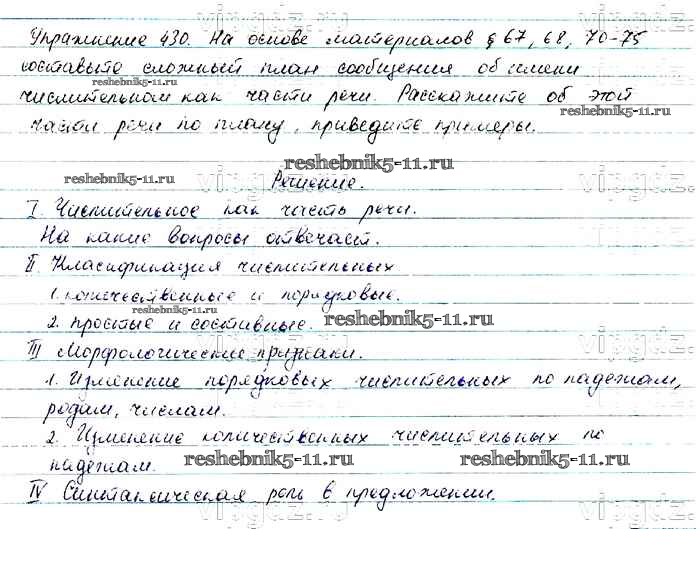 Упражнение 430. На основе материалов § 67, 68, 70-75
составьте сложный план сообщения об имени
reshebnik5-11.ru
числительном как части речи. Расскажите об этой
reshebnik5-11.ru
части речи по плану, приведите примеры.
reshebnik5-11.ru
reshebnik5-11.ru vipgdz.ru vipgdz.ru
Решение.
I. Числительное как часть речи.
На какие вопросы отвечает.
II. Классификация числительных
1. количественные и порядковые.
reshebnik5-11.ru
2. простые и составные. reshebnik5-11.ru
III Морфологические признаки.
1. Изменение порядковых числительных по падежам,
родам, числам.
2. Изменение количественных числительных по
падежам. reshebnik5-11.ru reshebnik5-11.ru
IV Синтаксическая роль в предложении.
vipgdz.ru vipgdz.ru